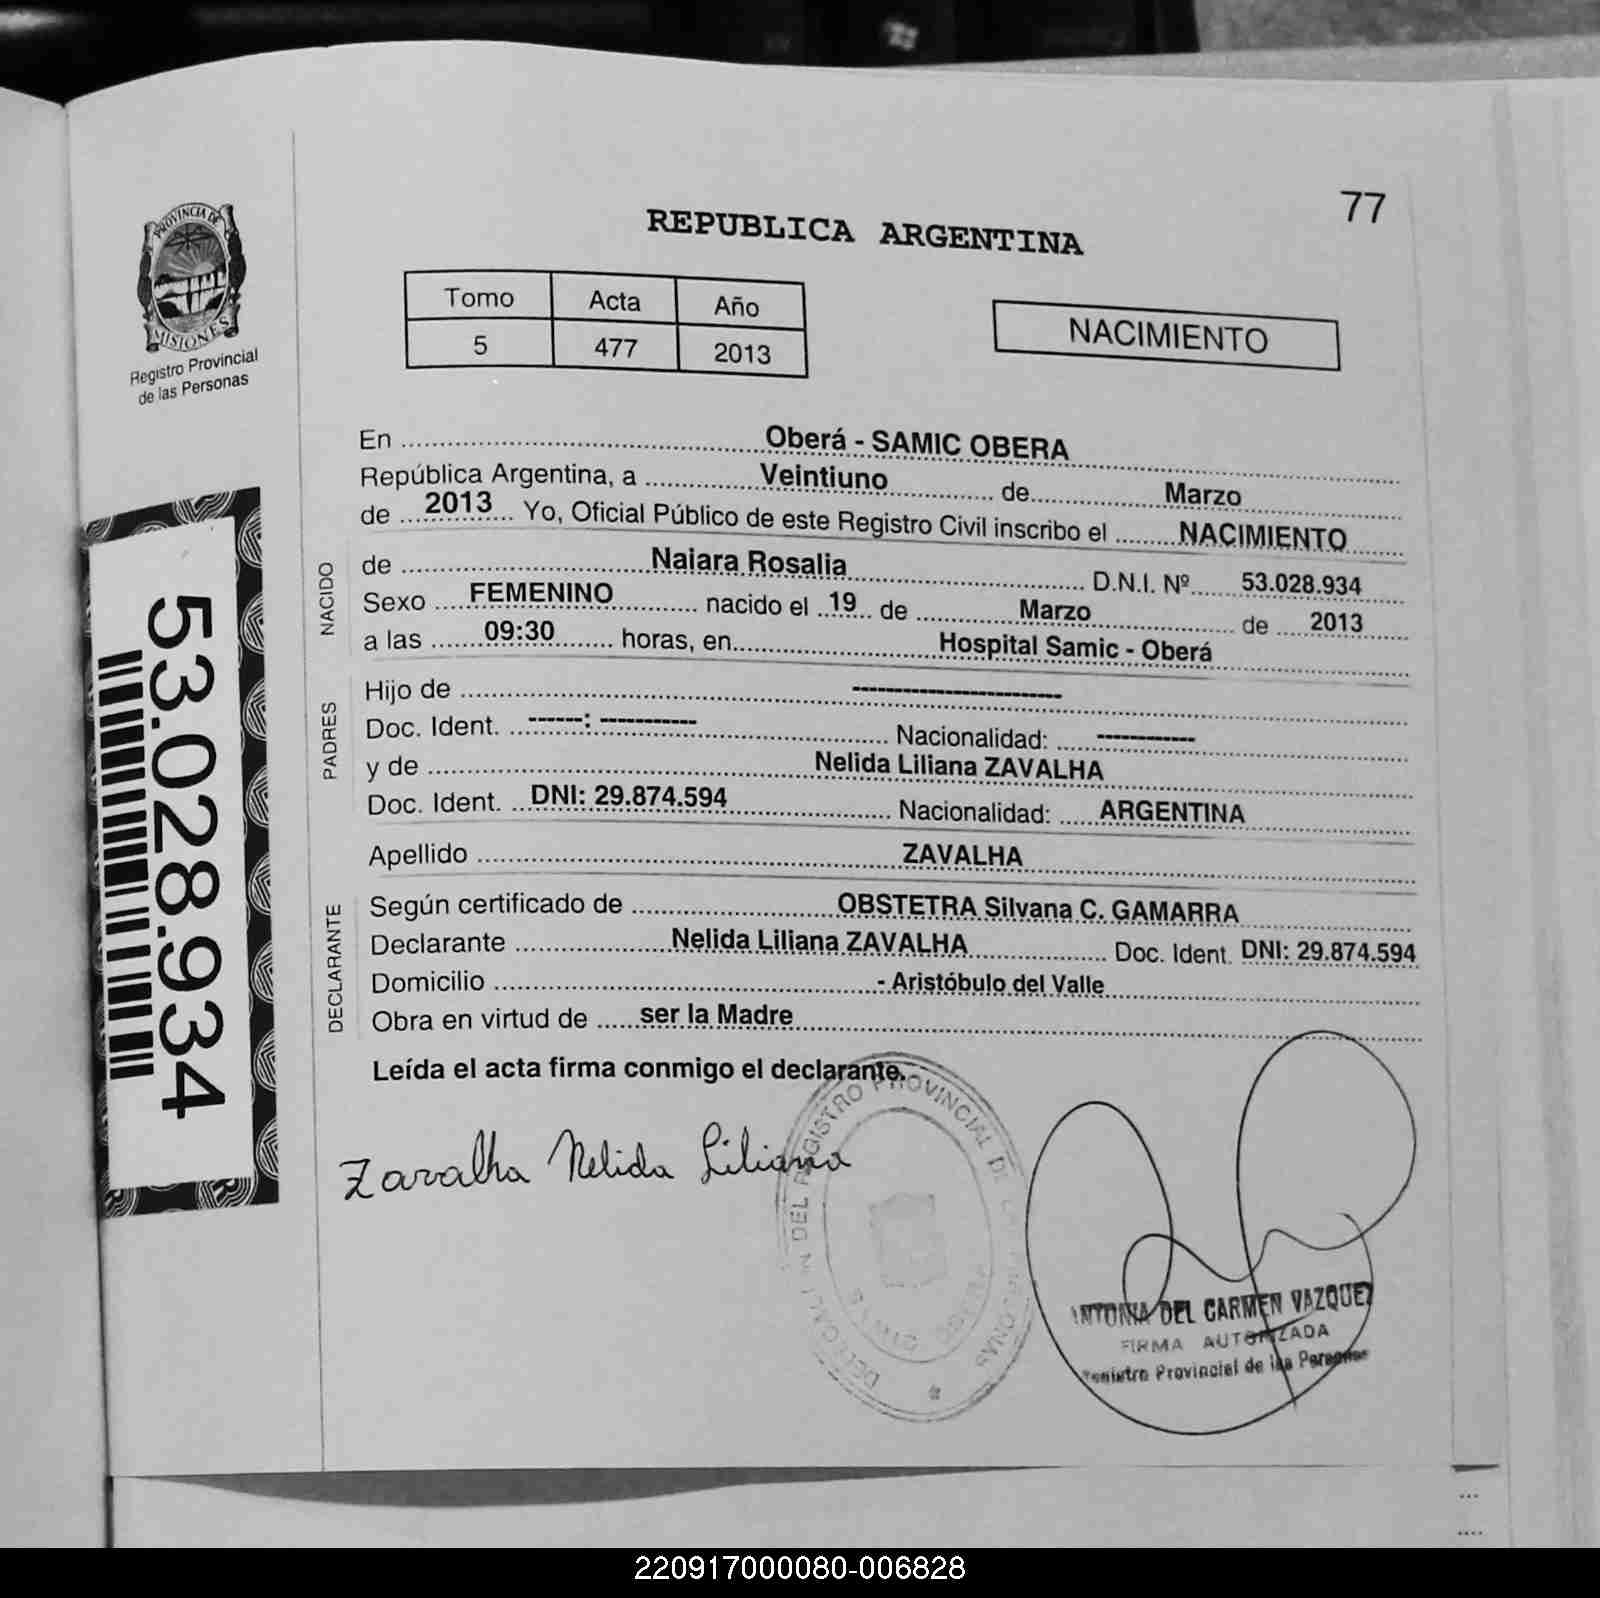 77
REPUBLICA ARGENTINA
PROVINCIA DE
MISIONES
Registro Provincial
de las Personas
Tomo Acta Año
5 477 2013
NACIMIENTO
En Oberá - SAMIC OBERA
República Argentina, a Veintiuno de Marzo
de 2013 Yo, Oficial Público de este Registro Civil inscribo el NACIMIENTO
NACIDO
de Naiara Rosalia D.N.I. Nº 53.028.934
Sexo FEMENINO nacido el 19 de Marzo de 2013
a las 09:30 horas, en Hospital Samic - Oberá
PADRES
Hijo de -------------------------
Doc. Ident. ------: ------------ Nacionalidad: ------------
y de Nelida Liliana ZAVALHA
Doc. Ident. DNI: 29.874.594 Nacionalidad: ARGENTINA
Apellido ZAVALHA
DECLARANTE
Según certificado de OBSTETRA Silvana C. GAMARRA
Declarante Nelida Liliana ZAVALHA Doc. Ident. DNI: 29.874.594
Domicilio - Aristóbulo del Valle
Obra en virtud de ser la Madre
Leída el acta firma conmigo el declarante.
53.028.934
Zavalha Nelida Liliana
DEL REGISTRO PROVINCIAL DE
ANTONIA DEL CARMEN VAZQUEZ
FIRMA AUTORIZADA
Registro Provincial de las Personas
220917000080-006828